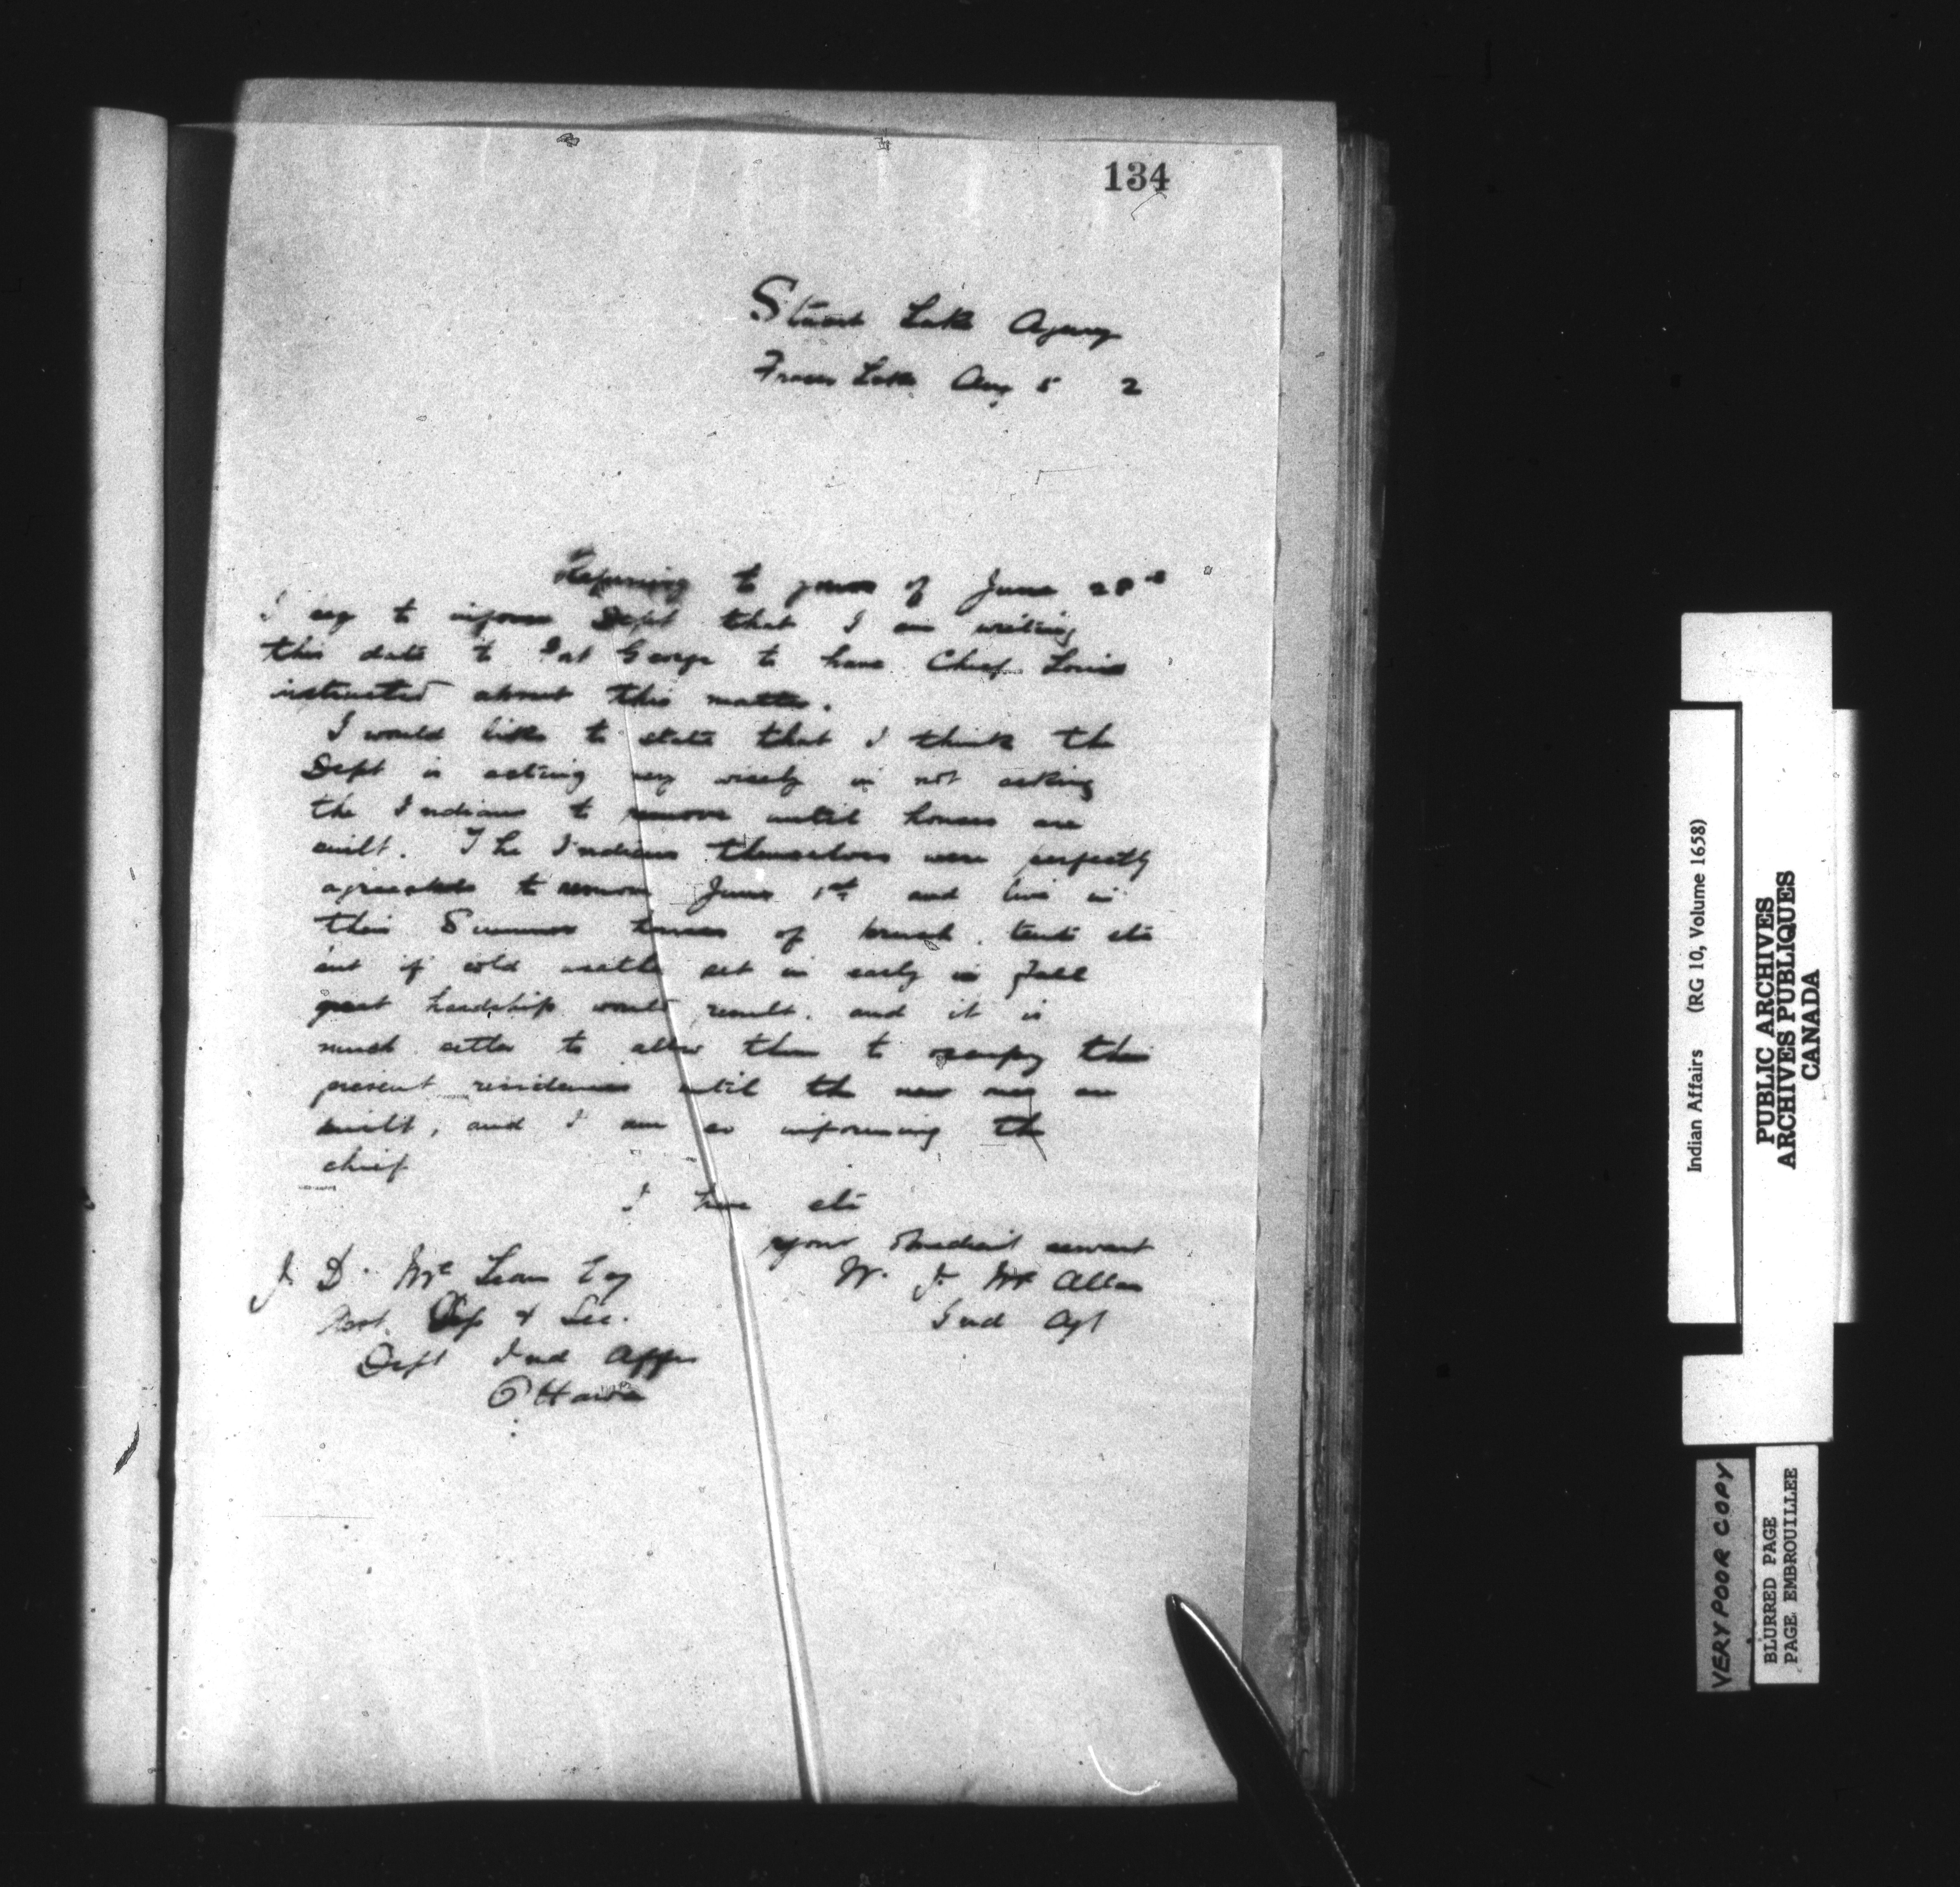 134
Stuart Lake Agency
Fraser Lake Aug 5 2
Referring to yours of June 28th
I beg to inform Dept that I am writing
this date to Fort George to have Chief Louis
instructed about this matter.
I would like to state that I think the
Dept is acting very wisely in not asking
the Indians to remove until houses are
built. The Indians themselves were perfectly
agreeable to remove June 1st and live in
their Summer houses of brush, tents etc
but if cold weather set in early in Fall
great hardship would result, and it is
much better to allow them to occupy their
present residences until the new ones are
built, and I am so informing the
chief
I have etc
your obedient servant
W. J. McAllan
Ind Agt
J. D. McLean Esq
Asst. Dep & Sec.
Dept Ind Affrs
Ottawa
Indian Affairs (RG 10, Volume 1658)
PUBLIC ARCHIVES
ARCHIVES PUBLIQUES
CANADA
VERY POOR COPY
BLURRED PAGE
PAGE EMBROUILLEE